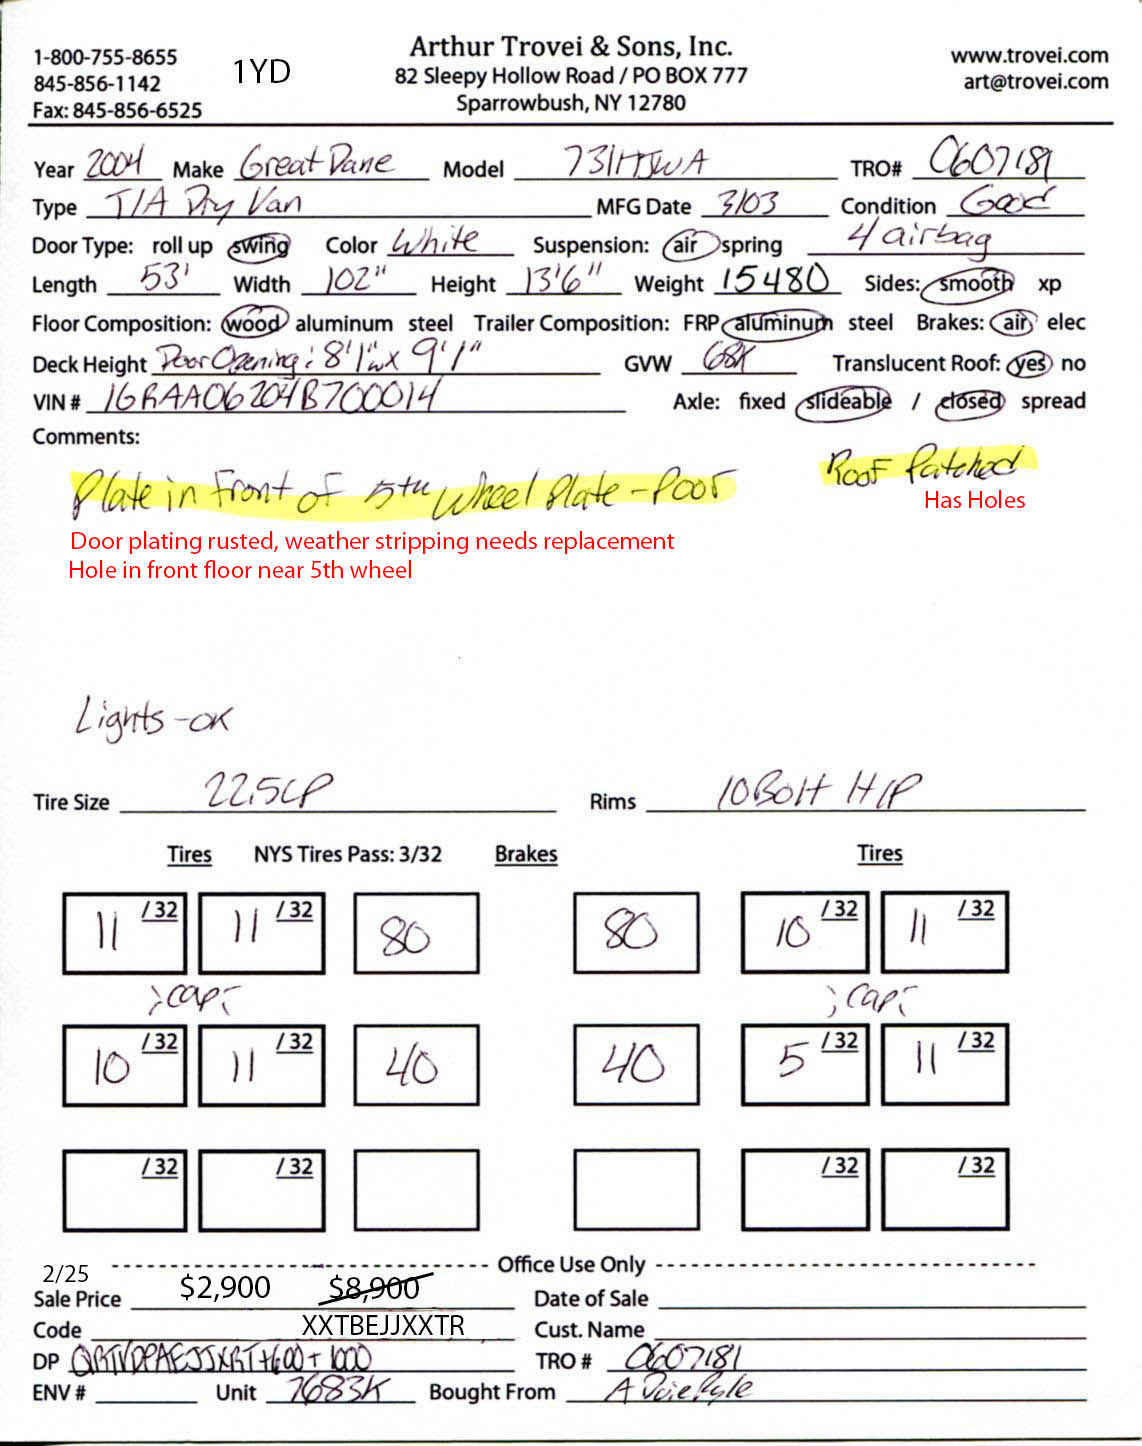 Arthur Trovei & Sons, Inc.
1-800-755-8655 1YD 82 Sleepy Hollow Road / PO BOX 777 www.trovei.com
845-856-1142 Sparrowbush, NY 12780 art@trovei.com
Fax: 845-856-6525
Year 2004 Make Great Dane Model 731HJWA TRO# 0607181
Type T/A Dry Van MFG Date 3/03 Condition Good
Door Type: roll up swing Color White Suspension: air spring 4 airbag
Length 53' Width 102" Height 13'6" Weight 15480 Sides: smooth xp
Floor Composition: wood aluminum steel Trailer Composition: FRP aluminum steel Brakes: air elec
Deck Height Door Opening: 8'1"w x 9'1" GVW 68K Translucent Roof: yes no
VIN # 1GRAA06204B700014 Axle: fixed slideable / closed spread
Comments:
Plate in front of 5th Wheel Plate - Poor Roof Patched
Has Holes
Door plating rusted, weather stripping needs replacement
Hole in front floor near 5th wheel
Lights - OK
Tire Size 22.5LP Rims 10 Bolt H/P
Tires NYS Tires Pass: 3/32 Brakes Tires
11 /32 11 /32 80 80 10 /32 11 /32
; cap ; cap
10 /32 11 /32 40 40 5 /32 11 /32
/32 /32 /32 /32
Office Use Only
2/25
Sale Price $2,900 $8,900 Date of Sale
Code XXTBEJJXXTR Cust. Name
DP +600 + 1000 TRO # 0607181
ENV # Unit 7683K Bought From A